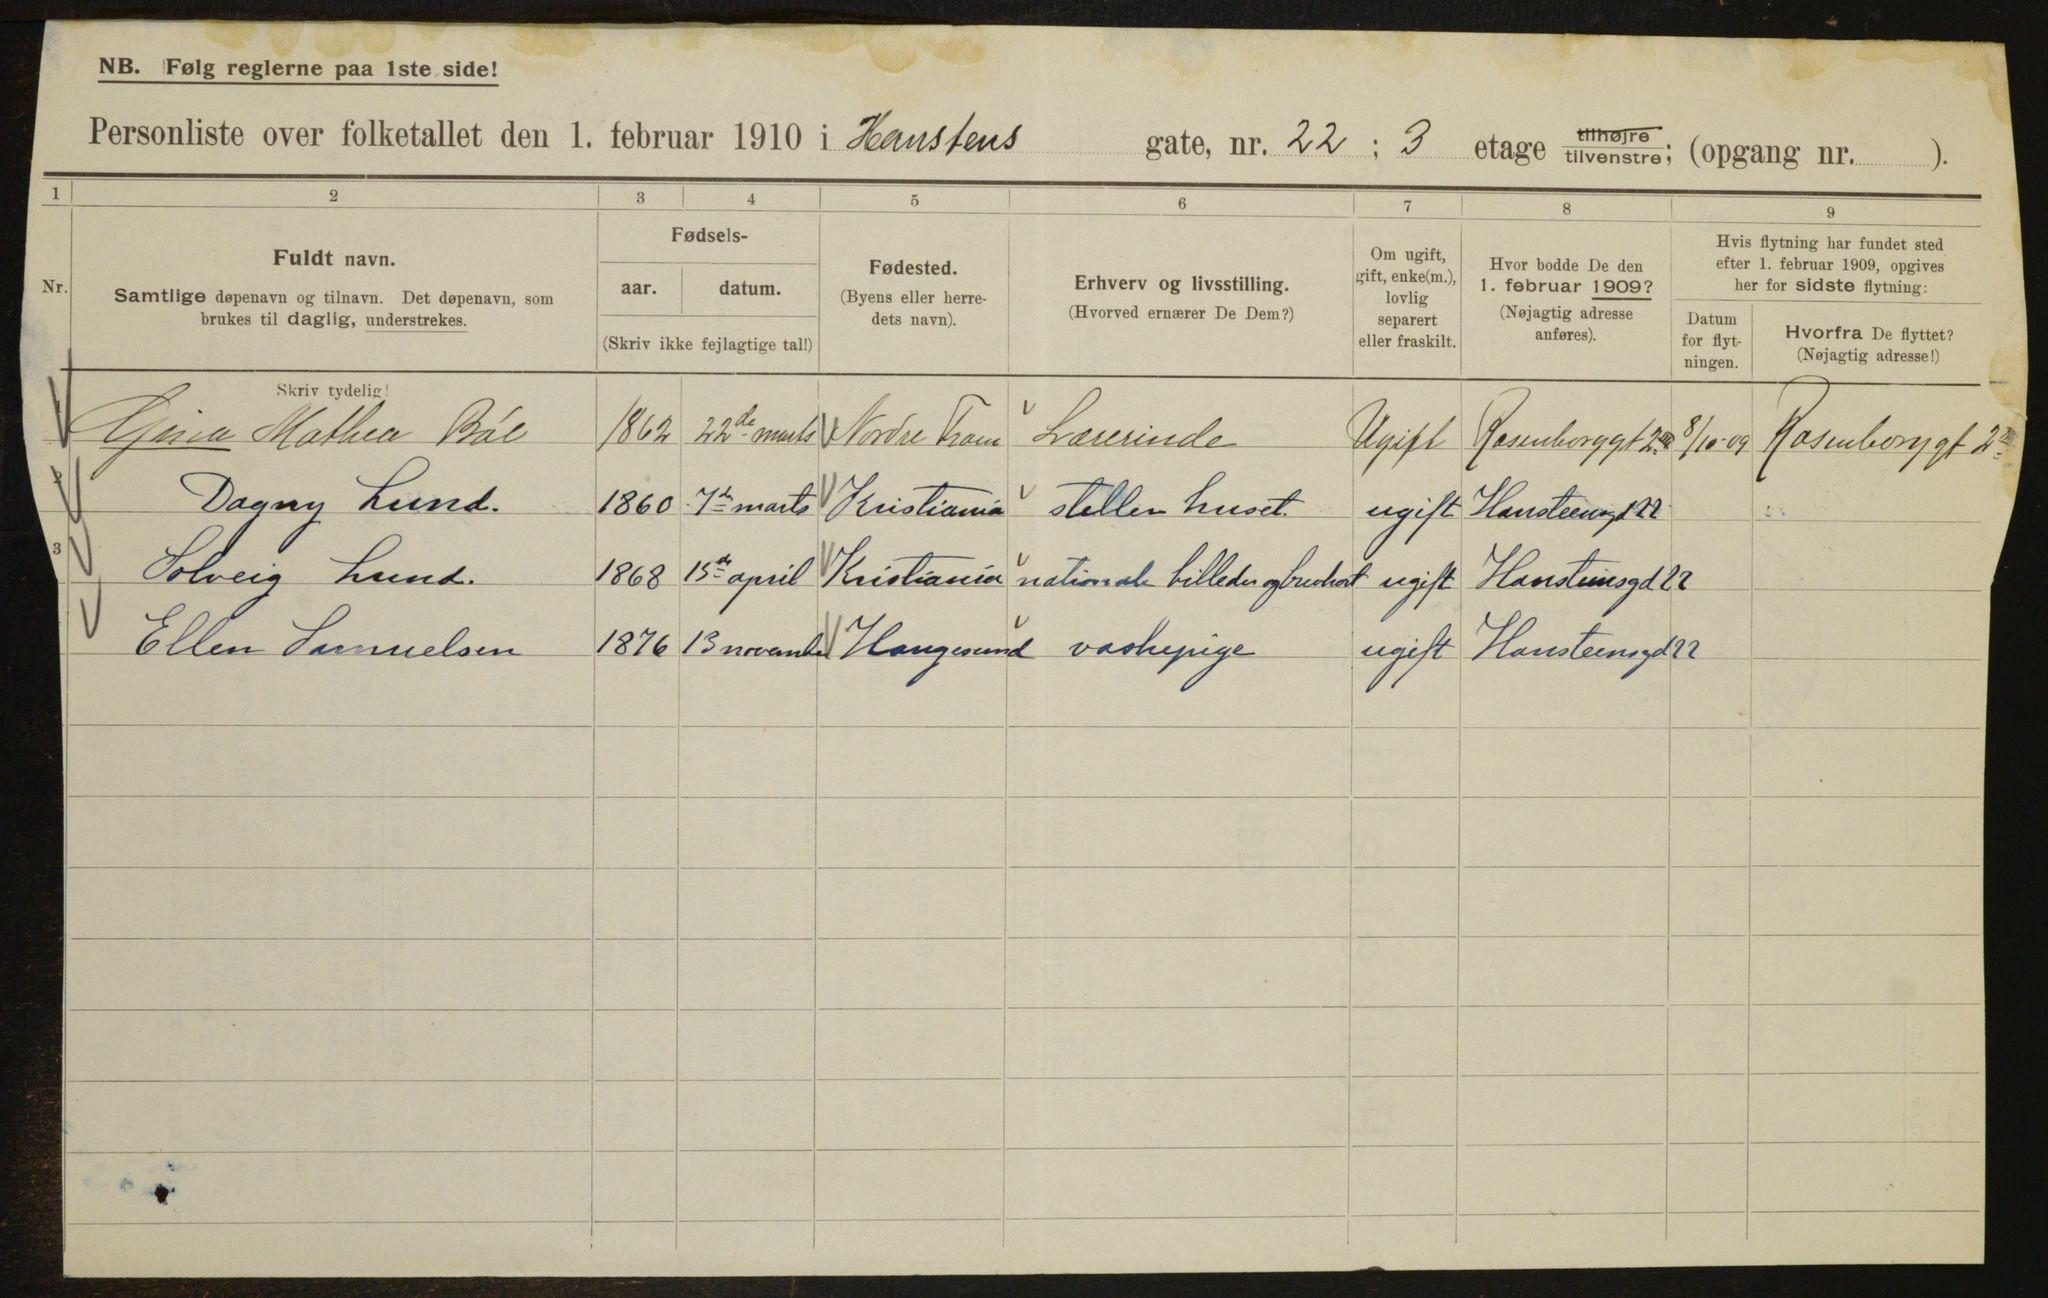 NB. Følg reglerne paa 1ste side!
Personliste over folketallet den 1. februar 1910 i Hanstens gate, nr. 22 ; 3 etage tilhøjre tilvenstre; (opgang nr. ).
1 2 3 4 5 6 7 8 9
Nr.
Fuldt navn.
Samtlige døpenavn og tilnavn. Det døpenavn, som
brukes til daglig, understrekes.
Fødsels-
aar. datum.
(Skriv ikke fejlagtige tal!)
Fødested.
(Byens eller herre-
dets navn).
Erhverv og livsstilling.
(Hvorved ernærer De Dem?)
Om ugift,
gift, enke(m.),
lovlig
separert
eller fraskilt.
Hvor bodde De den
1. februar 1909?
(Nøjagtig adresse
anføres).
Hvis flytning har fundet sted
efter 1. februar 1909, opgives
her for sidste flytning:
Datum
for flyt-
ningen.
Hvorfra De flyttet?
(Nøjagtig adresse!)
Skriv tydelig!
Gina Mathea Bøe 1862 22de marts Nordre Fron Lærerinde Ugift Rosenborggt 2 8/10-09 Rosenborggt 2
Dagny Lund. 1860 7de marts Kristiania steller huset. ugift Hansteensgd 22
3 Solveig Lund. 1868 15de april Kristiania nationale billeder og brevkort ugift Hansteensgd 22
Ellen Samuelsen 1876 13 november Haugesund vaskepige ugift Hansteensgd 22